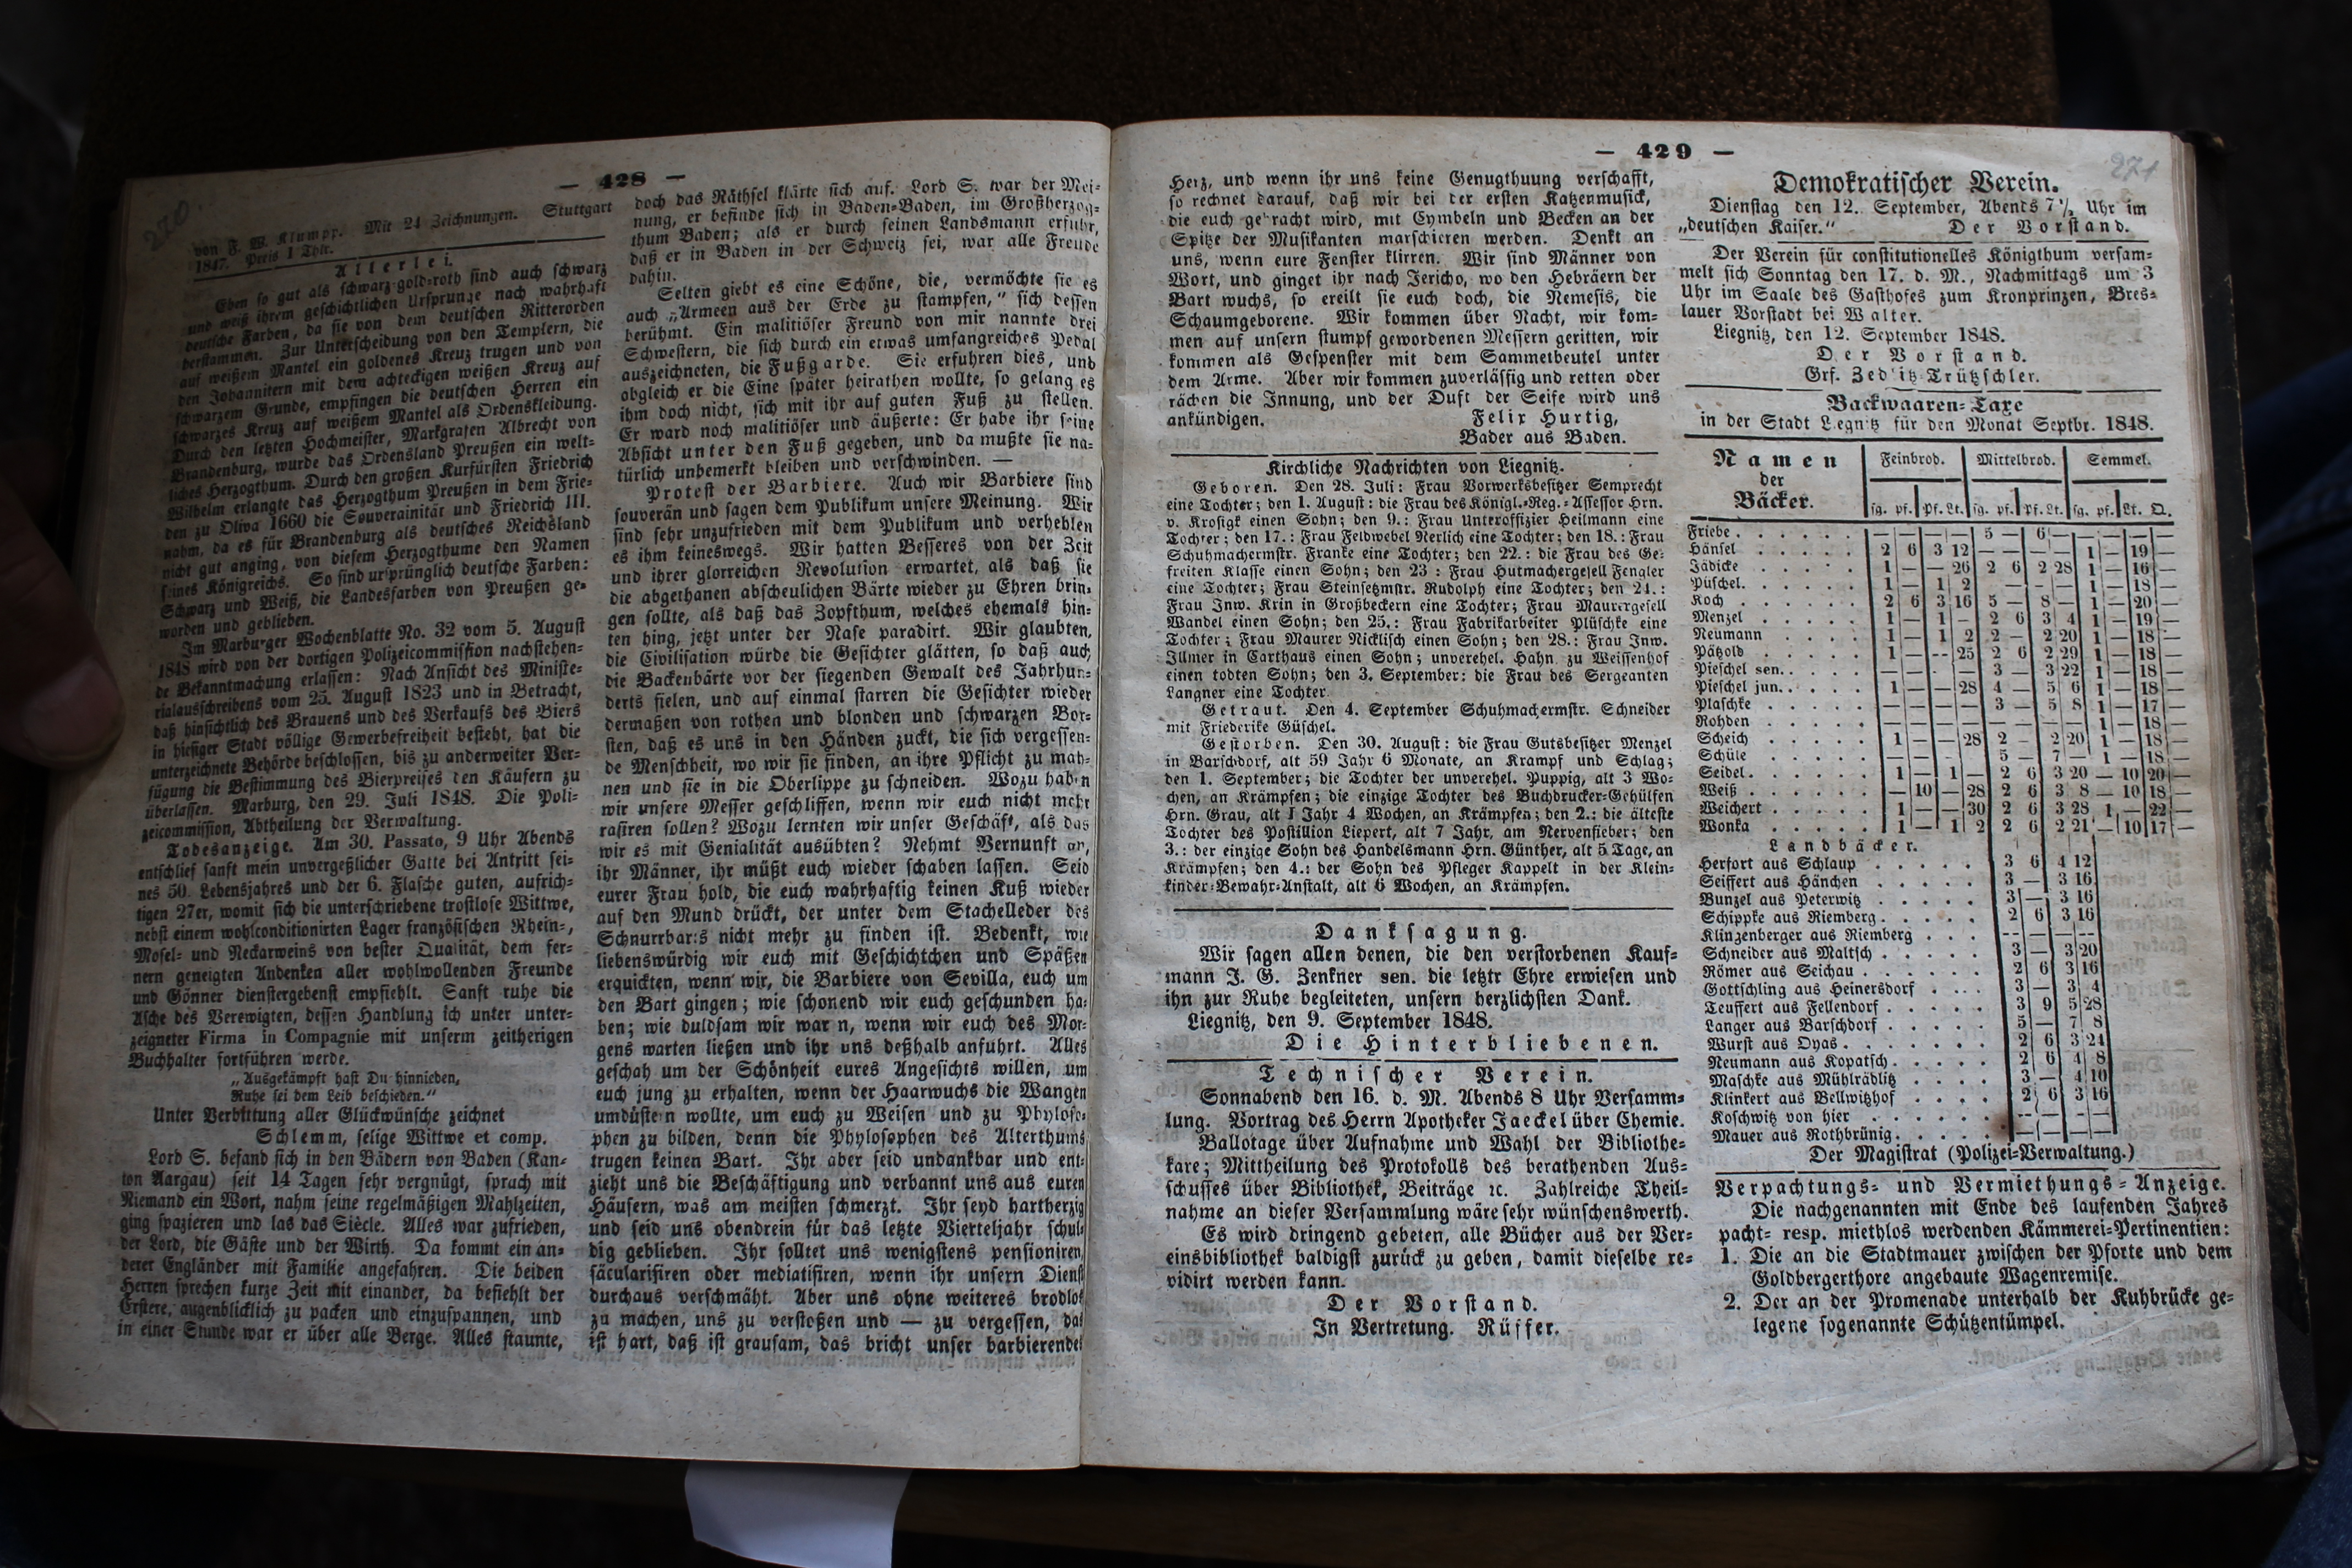 — 428 —
270
von F. W. Klumpp. Mit 24 Zeichnungen. Stuttgart
1847. Preis 1 Thlr.
Allerlei.
Eben so gut als schwarz-gold-roth sind auch schwarz
und weiß ihrem geschichtlichen Ursprunge nach wahrhaft
deutsche Farben, da sie von dem deutschen Ritterorden
herstammen. Zur Unterscheidung von den Templern, die
auf weißem Mantel ein goldenes Kreuz trugen und von
den Johannitern mit dem achteckigen weißen Kreuz auf
schwarzem Grunde, empfingen die deutschen Herren ein
schwarzes Kreuz auf weißem Mantel als Ordenskleidung.
Durch den letzten Hochmeister, Markgrafen Albrecht von
Brandenburg, wurde das Ordensland Preußen ein welt-
liches Herzogthum. Durch den großen Kurfürsten Friedrich
Wilhelm erlangte das Herzogthum Preußen in dem Frie-
den zu Oliva 1660 die Souverainität und Friedrich III.
nahm, da es für Brandenburg als deutsches Reichsland
nicht gut anging, von diesem Herzogthume den Namen
seines Königreichs. So sind ursprünglich deutsche Farben:
Schwarz und Weiß, die Landesfarben von Preußen ge-
worden und geblieben.
Im Marburger Wochenblatte No. 32 vom 5. August
1848 wird von der dortigen Polizeicommission nachstehen-
de Bekanntmachung erlassen: Nach Ansicht des Ministe-
rialausschreibens vom 25. August 1823 und in Betracht,
daß hinsichtlich des Brauens und des Verkaufs des Biers
in hiesiger Stadt völlige Gewerbefreiheit besteht, hat die
unterzeichnete Behörde beschlossen, bis zu anderweiter Ver-
fügung die Bestimmung des Bierpreises den Käufern zu
überlassen. Marburg, den 29. Juli 1848. Die Poli-
zeicommission, Abtheilung der Verwaltung.
Todesanzeige. Am 30. Passato, 9 Uhr Abends
entschlief sanft mein unvergeßlicher Gatte bei Antritt sei-
nes 50. Lebensjahres und der 6. Flasche guten, aufrich-
tigen 27er, womit sich die unterschriebene trostlose Wittwe,
nebst einem wohlconditionirten Lager französischen Rhein-,
Mosel- und Neckarweins von bester Qualität, dem fer-
nern geneigten Andenken aller wohlwollenden Freunde
und Gönner dienstergebenst empfiehlt. Sanft ruhe die
Asche des Verewigten, dessen Handlung ich unter unter-
zeigneter Firma in Compagnie mit unserm zeitherigen
Buchhalter fortführen werde.
„Ausgekämpft hast Du hinnieden,
Ruhe sei dem Leib beschieden."
Unter Verbittung aller Glückwünsche zeichnet
Schlemm, selige Wittwe et comp.
Lord S. befand sich in den Bädern von Baden (Kan-
ton Aargau) seit 14 Tagen sehr vergnügt, sprach mit
Niemand ein Wort, nahm seine regelmäßigen Mahlzeiten,
ging spazieren und las das Siècle. Alles war zufrieden,
der Lord, die Gäste und der Wirth. Da kommt ein an-
derer Engländer mit Familie angefahren. Die beiden
Herren sprechen kurze Zeit mit einander, da befiehlt der
Erstere, augenblicklich zu packen und einzuspannen, und
in einer Stunde war er über alle Berge. Alles staunte,
doch das Räthsel klärte sich auf. Lord S. war der Mei-
nung, er befinde sich in Baden-Baden, im Großherzog-
thum Baden; als er durch seinen Landsmann erfuhr,
daß er in Baden in der Schweiz sei, war alle Freude
dahin.
Selten giebt es eine Schöne, die, vermöchte sie es
auch „Armeen aus der Erde zu stampfen," sich dessen
berühmt. Ein malitiöser Freund von mir nannte drei
Schwestern, die sich durch ein etwas umfangreiches Pedal
auszeichneten, die Fußgarde. Sie erfuhren dies, und
abgleich er die Eine später heirathen wollte, so gelang es
ihm doch nicht, sich mit ihr auf guten Fuß zu stellen.
Er ward noch malitiöser und äußerte: Er habe ihr seine
Absicht unter den Fuß gegeben, und da mußte sie na-
türlich unbemerkt bleiben und verschwinden. —
Protest der Barbiere. Auch wir Barbiere sind
souverän und sagen dem Publikum unsere Meinung. Wir
sind sehr unzufrieden mit dem Publikum und verhehlen
es ihm keineswegs. Wir hatten Besseres von der Zeit
und ihrer glorreichen Revolution erwartet, als daß sie
die abgethanen abscheulichen Bärte wieder zu Ehren brin-
gen sollte, als daß das Zopfthum, welches ehemals hin-
ten hing, jetzt unter der Nase paradirt. Wir glaubten,
die Civilisation würde die Gesichter glätten, so daß auch
die Backenbärte vor der siegenden Gewalt des Jahrhun-
derts fielen, und auf einmal starren die Gesichter wieder
dermaßen von rothen und blonden und schwarzen Bor-
sten, daß es uns in den Händen zuckt, die sich vergessen-
de Menschheit, wo wir sie finden, an ihre Pflicht zu mah-
nen und sie in die Oberlippe zu schneiden. Wozu hab'n
wir unsere Messer geschliffen, wenn wir euch nicht mehr
rasiren sollen? Wozu lernten wir unser Geschäft, als das
wir es mit Genialität ausübten? Nehmt Vernunft an,
ihr Männer, ihr müßt euch wieder schaben lassen. Seid
eurer Frau hold, die euch wahrhaftig keinen Kuß wieder
auf den Mund drückt, der unter dem Stachelleder des
Schnurrbarts nicht mehr zu finden ist. Bedenkt, wie
liebenswürdig wir euch mit Geschichtchen und Späßen
erquickten, wenn wir, die Barbiere von Sevilla, euch um
den Bart gingen; wie schonend wir euch geschunden ha-
ben; wie duldsam wir war n, wenn wir euch des Mor-
gens warten ließen und ihr uns deßhalb anfuhrt. Alles
geschah um der Schönheit eures Angesichts willen, um
euch jung zu erhalten, wenn der Haarwuchs die Wangen
umdüstern wollte, um euch zu Weisen und zu Phyloso-
phen zu bilden, denn die Phylosophen des Alterthums
trugen keinen Bart. Ihr aber seid undankbar und ent-
zieht uns die Beschäftigung und verbannt uns aus euren
Häusern, was am meisten schmerzt. Ihr seyd hartherzig
und seid uns obendrein für das letzte Vierteljahr schul-
dig geblieben. Ihr solltet uns wenigstens pensioniren,
säcularisiren oder mediatisiren, wenn ihr unsern Dienst
durchaus verschmäht. Aber uns ohne weiteres brodlos
zu machen, uns zu verstoßen und — zu vergessen, das
ist hart, daß ist grausam, das bricht unser barbierendes
— 429 —
271
Herz, und wenn ihr uns keine Genugthuung verschafft,
so rechnet darauf, daß wir bei der ersten Katzenmusick,
die euch gebracht wird, mit Cymbeln und Becken an der
Spitze der Musikanten marschieren werden. Denkt an
uns, wenn eure Fenster klirren. Wir sind Männer von
Wort, und ginget ihr nach Jericho, wo den Hebräern der
Bart wuchs, so ereilt sie euch doch, die Nemesis, die
Schaumgeborene. Wir kommen über Nacht, wir kom-
men auf unsern stumpf gewordenen Messern geritten, wir
kommen als Gespenster mit dem Sammetbeutel unter
dem Arme. Aber wir kommen zuverlässig und retten oder
rächen die Innung, und der Duft der Seife wird uns
ankündigen. Felix Hurtig,
Bader aus Baden.
Kirchliche Nachrichten von Liegnitz.
Geboren. Den 28. Juli: Frau Vorwerksbesitzer Semprecht
eine Tochter; den 1. August: die Frau des Königl.-Reg.-Assessor Hrn.
v. Krosigk einen Sohn; den 9.: Frau Unteroffizier Heilmann eine
Tochter; den 17.: Frau Feldwebel Nerlich eine Tochter; den 18.: Frau
Schuhmachermstr. Franke eine Tochter; den 22.: die Frau des Ge-
freiten Klasse einen Sohn; den 23: Frau Hutmachergesell Fengler
eine Tochter; Frau Steinsetzmstr. Rudolph eine Tochter; den 24.:
Frau Inw. Krin in Großbeckern eine Tochter; Frau Maurergesell
Wandel einen Sohn; den 25.: Frau Fabrikarbeiter Plüschke eine
Tochter; Frau Maurer Nicklisch einen Sohn; den 28.: Frau Inw.
Illmer in Carthaus einen Sohn; unverehel. Hahn zu Weissenhof
einen todten Sohn; den 3. September: die Frau des Sergeanten
Langner eine Tochter.
Getraut. Den 4. September Schuhmachermstr. Schneider
mit Friederike Güschel.
Gestorben. Den 30. August: die Frau Gutsbesitzer Menzel
in Barschdorf, alt 59 Jahr 6 Monate, an Krampf und Schlag;
den 1. September; die Tochter der unverehel. Puppig, alt 3 Wo-
chen, an Krämpfen; die einzige Tochter des Buchdrucker-Gehülfen
Hrn. Grau, alt 1 Jahr 4 Wochen, an Krämpfen; den 2.: die älteste
Tochter des Postillion Liepert, alt 7 Jahr, am Nervenfieber; den
3.: der einzige Sohn des Handelsmann Hrn. Günther, alt 5 Tage, an
Krämpfen; den 4.: der Sohn des Pfleger Kappelt in der Klein-
kinder-Bewahr-Anstalt, alt 6 Wochen, an Krämpfen.
Danksagung.
Wir sagen allen denen, die den verstorbenen Kauf-
mann J. G. Zenkner sen. die letztr Ehre erwiesen und
ihn zur Ruhe begleiteten, unsern herzlichsten Dank.
Liegnitz, den 9. September 1848.
Die Hinterbliebenen.
Technischer Verein.
Sonnabend den 16. d. M. Abends 8 Uhr Versamm-
lung. Vortrag des Herrn Apotheker Jaeckel über Chemie.
Ballotage über Aufnahme und Wahl der Bibliothe-
kare; Mittheilung des Protokolls des berathenden Aus-
schusses über Bibliothek, Beiträge ꝛc. Zahlreiche Theil-
nahme an dieser Versammlung wäre sehr wünschenswerth.
Es wird dringend gebeten, alle Bücher aus der Ver-
einsbibliothek baldigst zurück zu geben, damit dieselbe re-
vidirt werden kann.
Der Vorstand.
In Vertretung. Rüffer.
Demokratischer Verein.
Dienstag den 12. September, Abends 7½ Uhr im
„deutschen Kaiser." Der Vorstand.
Der Verein für constitutionelles Königthum versam-
melt sich Sonntag den 17. d. M., Nachmittags um 3
Uhr im Saale des Gasthofes zum Kronprinzen, Bres-
lauer Vorstadt bei Walter.
Liegnitz, den 12. September 1848.
Der Vorstand.
Grf. Zedlitz-Trützschler.
Backwaaren-Taxe
in der Stadt Liegnitz für den Monat Septbr. 1848.
Namen der Bäcker. Feinbrod. Mittelbrod. Semmel.
sg. pf. Pf. Lt. sg. pf. Pf. Lt. sg. pf. Lt. Q.
Friebe . . . — — — — 5 — 6 — — — — —
Hänsel . . . 2 6 3 12 — — — — 1 — 19 —
Jädicke . . . 1 — — 26 2 6 2 28 1 — 16 —
Püschel. . . . 1 — 1 2 — — — — 1 — 18 —
Koch . . . 2 6 3 16 5 — 8 — 1 — 20 —
Menzel . . . 1 — 1 — 2 6 3 4 1 — 19 —
Neumann . . . 1 — 1 2 2 — 2 20 1 — 18 —
Pätzold . . . 1 — — 25 2 6 2 29 1 — 18 —
Pieschel sen. . . . — — — — 3 — 3 22 1 — 18 —
Pieschel jun. . . . 1 — — 28 4 — 5 6 1 — 18 —
Plaschke . . . — — — — 3 — 5 8 1 — 17 —
Rohden . . . — — — — — — — — 1 — 18 —
Scheich . . . 1 — — 28 2 — 2 20 1 — 18 —
Schüle . . . — — — — 5 — 7 — 1 — 18 —
Seidel. . . . 1 — 1 — 2 6 3 20 — 10 20 —
Weiß . . . — 10 — 28 2 6 3 8 — 10 18 —
Weichert . . . 1 — — 30 2 6 3 28 1 — 22 —
Wonka . . . 1 — 1 2 2 6 2 21 — 10 17 —
Landbäcker.
Herfort aus Schlaup . . . 3 6 4 12
Seiffert aus Hänchen . . . 3 — 3 16
Bunzel aus Peterwitz . . . 3 — 3 16
Schippke aus Riemberg . . . 2 6 3 16
Klinzenberger aus Riemberg . . . — — — —
Schneider aus Maltsch . . . 3 — 3 20
Römer aus Seichau . . . 2 6 3 16
Gottschling aus Heinersdorf . . . 3 — 3 4
Teuffert aus Fellendorf . . . 3 9 5 28
Langer aus Barschdorf . . . 5 — 7 8
Wurst aus Oyas. . . . 2 6 3 24
Neumann aus Kopatsch. . . . 2 6 4 8
Maschke aus Mühlrädlitz . . . 3 — 4 10
Klinkert aus Bellwitzhof . . . 2 6 3 16
Koschwitz von hier . . . — — — —
Mauer aus Rothbrünig. . . . — — — —
Der Magistrat (Polizei-Verwaltung.)
Verpachtungs- und Vermiethungs-Anzeige.
Die nachgenannten mit Ende des laufenden Jahres
pacht- resp. miethlos werdenden Kämmerei-Pertinentien:
1. Die an die Stadtmauer zwischen der Pforte und dem
Goldbergerthore angebaute Wagenremise.
2. Der an der Promenade unterhalb der Kuhbrücke ge-
legene sogenannte Schützentümpel.